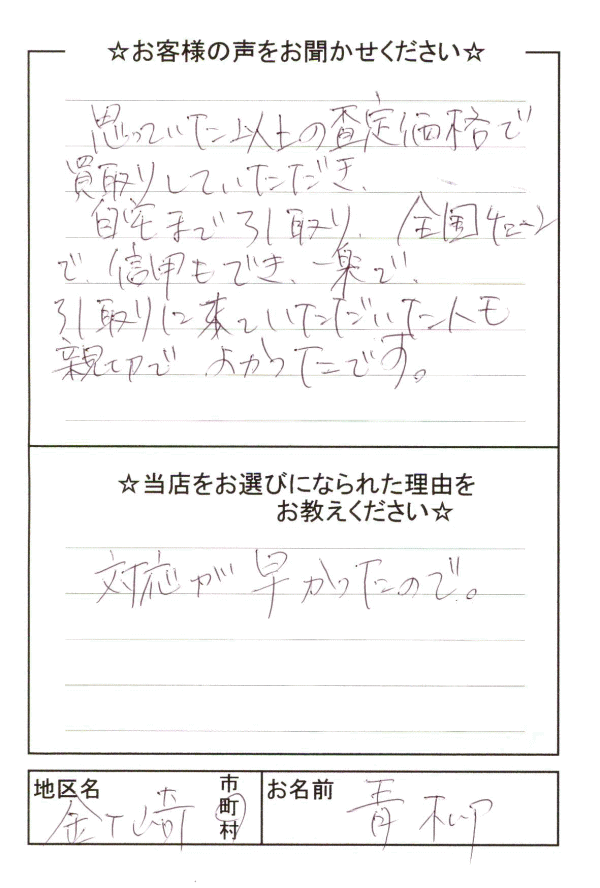 ☆お客様の声をお聞かせください☆
思っていた以上の査定価格で
買取りしていただき、
自宅まで引取り、全国チェーン
で、信用もでき、楽で、
引取りに来ていただいた人も
親切でよかったです。
☆当店をお選びになられた理由を
お教えください☆
対応が早かったので。
地区名
金ヶ崎
市
町
村
お名前
青柳